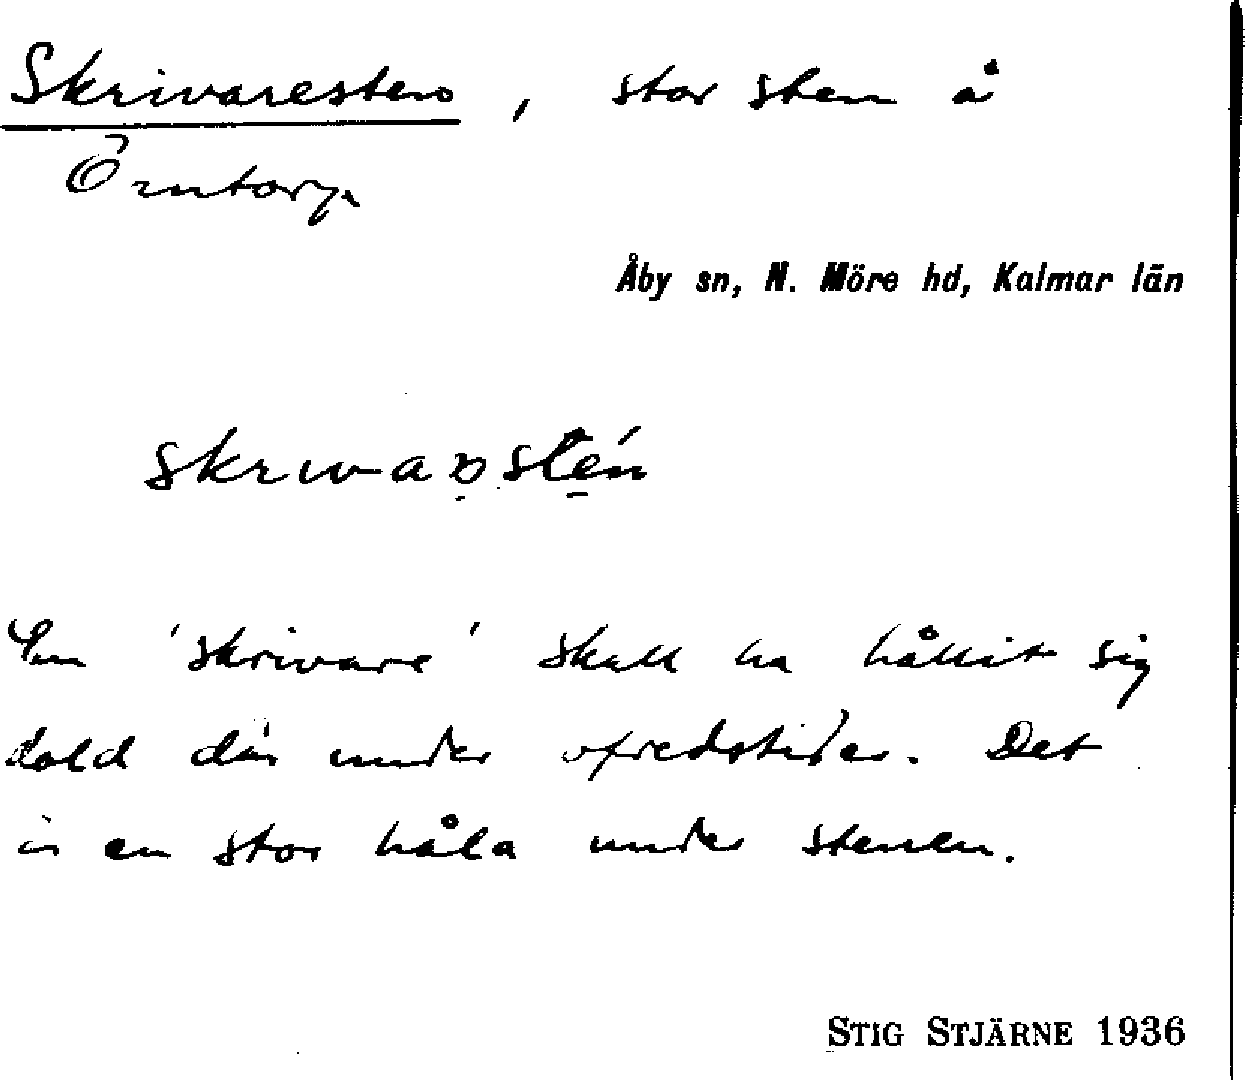 Skrivaresten, stor sten å
Örntorp.
Åby sn, N. Möre hd, Kalmar län
En 'skrivare' skall ha hållit sig
dold där under ofredstider. Det
är en stor håla under stenen.
STIG STJÄRNE 1936